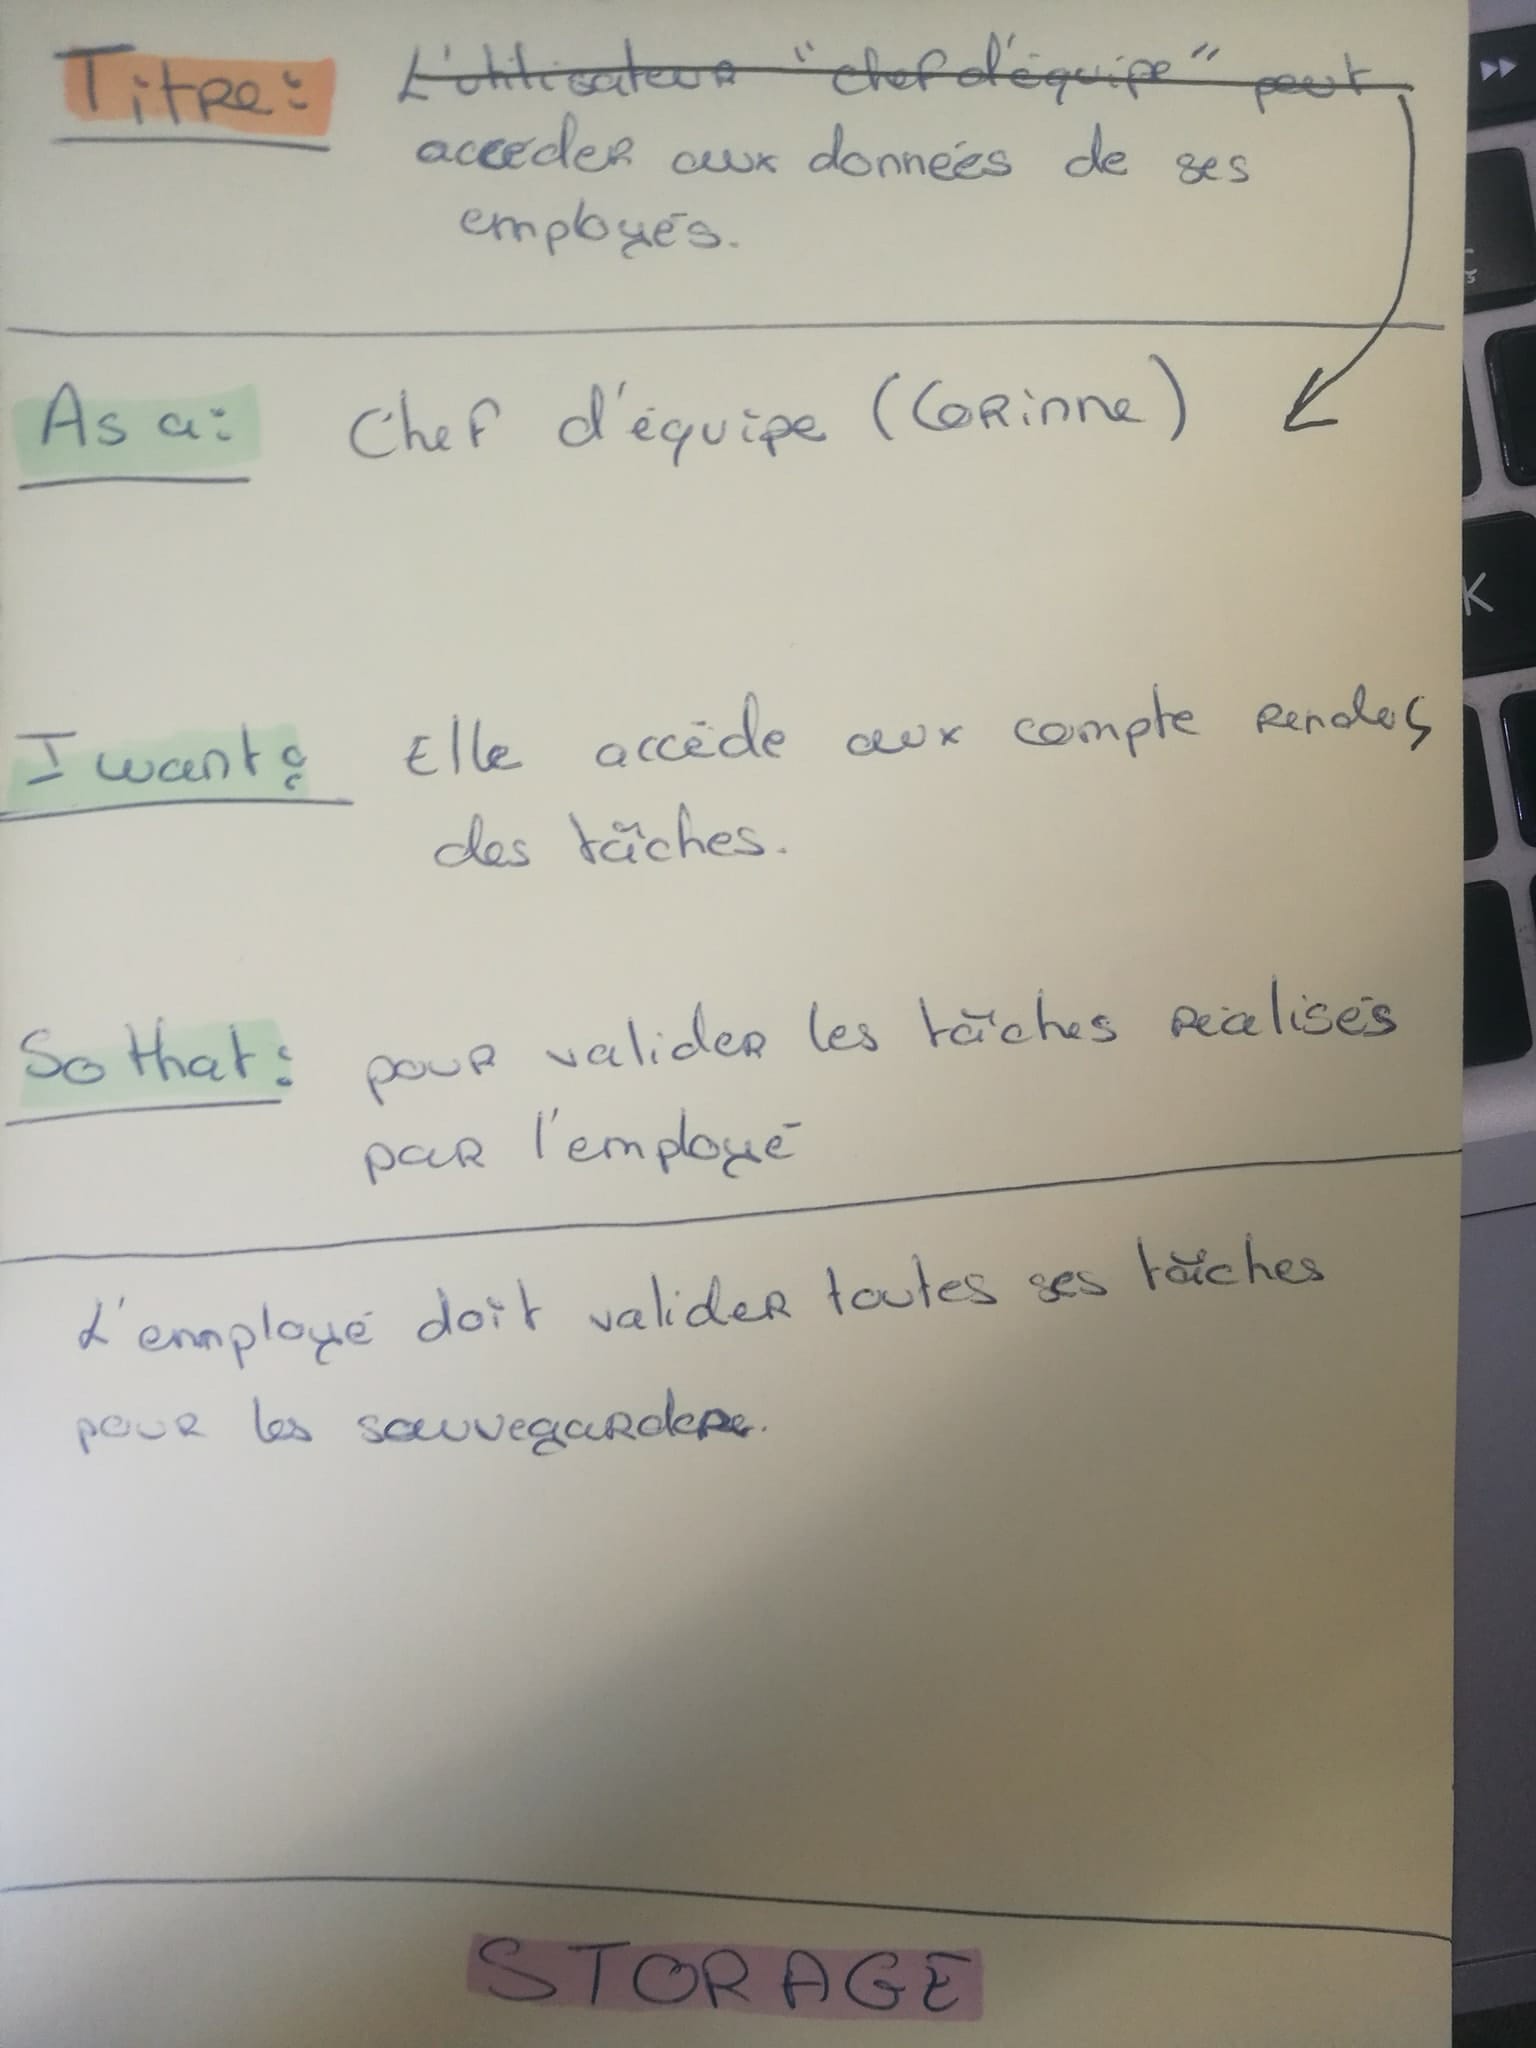 Titre: L'utilisateur "chef d'équipe" peut
accéder aux données de ses
employés.
As a: Chef d'équipe (Corinne)
I want: Elle accède aux compte rendus
des tâches.
So that: pour valider les tâches réalisés
par l'employé
L'employé doit valider toutes ses tâches
pour les sauvegarder.
STORAGE
K